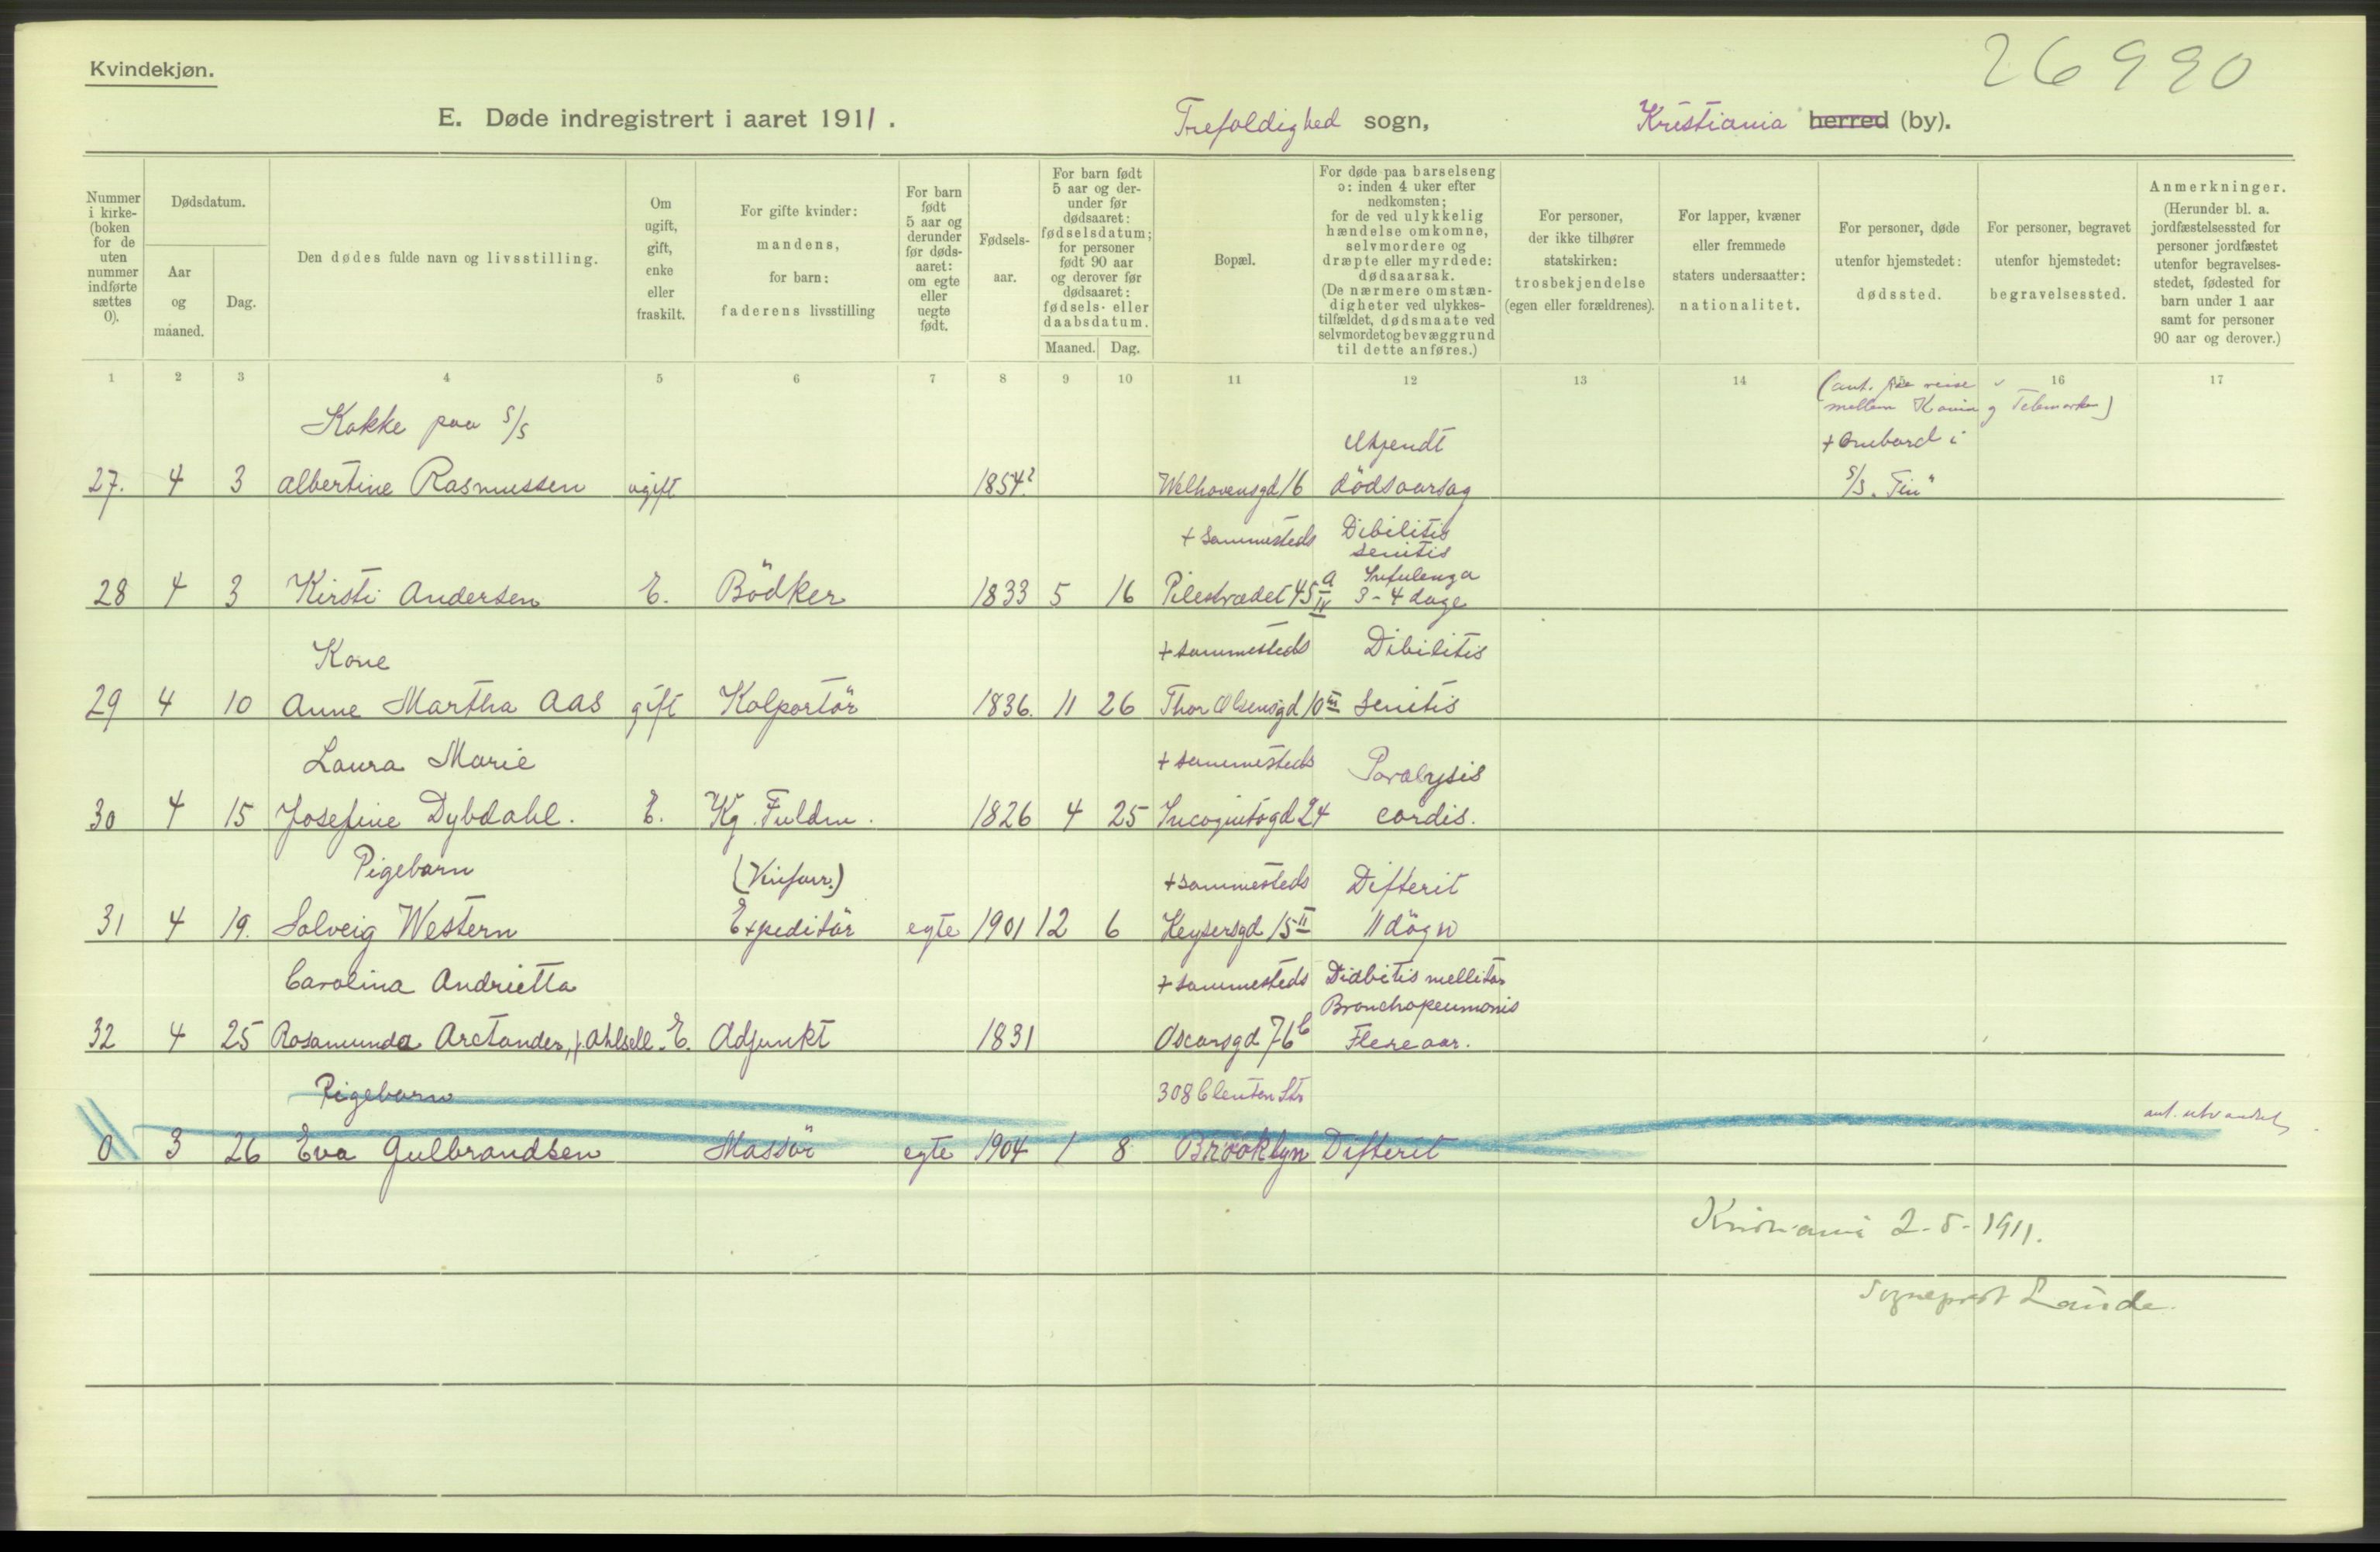 26990
Kvindekjøn.
E. Døde indregistrert i aaret 1911. Trefoldighed sogn, Kristiania herred (by).
Nummer i kirke- (boken for de uten nummer indførte sættes 0).
Dødsdatum.
Aar og maaned.
Dag.
Den dødes fulde navn og livsstilling.
Om ugift, gift, enke eller fraskilt.
For gifte kvinder: mandens, for barn: faderens livsstilling
For barn født 5 aar og derunder før døds- aaret: om egte eller uegte født.
Fødsels- aar.
For barn født 5 aar og der- under før dødsaaret: fødselsdatum; for personer født 90 aar og derover før dødsaaret: fødsels- eller daabsdatum.
Maaned. Dag.
Bopæl.
For døde paa barselseng ɔ: inden 4 uker efter nedkomsten; for de ved ulykkelig hændelse omkomne, selvmordere og dræpte eller myrdede: dødsaarsak. (De nærmere omstæn- digheter ved ulykkes- tilfældet, dødsmaate ved selvmordet og bevæggrund til dette anføres.)
For personer, der ikke tilhører statskirken: trosbekjendelse (egen eller forældrenes).
For lapper, kvæner eller fremmede staters undersaatter: nationalitet.
For personer, døde utenfor hjemstedet: dødssted.
For personer, begravet utenfor hjemstedet: begravelsessted.
Anmerkninger. (Herunder bl. a. jordfæstelsessted for personer jordfæstet utenfor begravelses- stedet, fødested for barn under 1 aar samt for personer 90 aar og derover.)
1 2 3 4 5 6 7 8 9 10 11 12 13 14 15 16 17
(ant. paa reise
mellem Kania og Telemarken)
Kokke paa S/S Ukjendt + Ombord i
27. 4 3 Albertine Rasmussen ugift 1854? Welhavensgd 16 dödsaarsag S/S "Tin"
+ sammesteds Dibilitis senitis
28 4 3 Kirsti Andersen E. Bödker 1833 5 16 Pilestrædet 45 a IV Infulenza 3-4 dage
Kone + sammesteds Dibilitis
29 4 10 Anne Martha Aas gift Kolportör 1836. 11 26 Thor Olsensgd 10 III senitis
Laura Marie + sammesteds Paralysis
30 4 15 Josefine Dybdahl. E. Kg. Fuldm. 1826 4 25 Incognitogd 24 cordis.
Pigebarn (Vinforr.) + sammesteds Difterit
31 4 19. Solveig Western Expeditör egte 1901 12 6 Keysersgd 15 II 11 dögn
Carolina Andrietta + sammesteds Diabetis mellitas
Bronchopeumonis
32 4 25 Rosamunda Arctander, f. Ahlsell. E. Adjunkt 1831 Oscarsgd 76 b Flere aar.
Pigebarn 308 Clenton Str
ant. utvandret
0 3 26 Eva Gulbrandsen Massör egte 1904 1 8 Brooklyn Difterit
Kristiania 2-5-1911.
Sogneprest Lande.